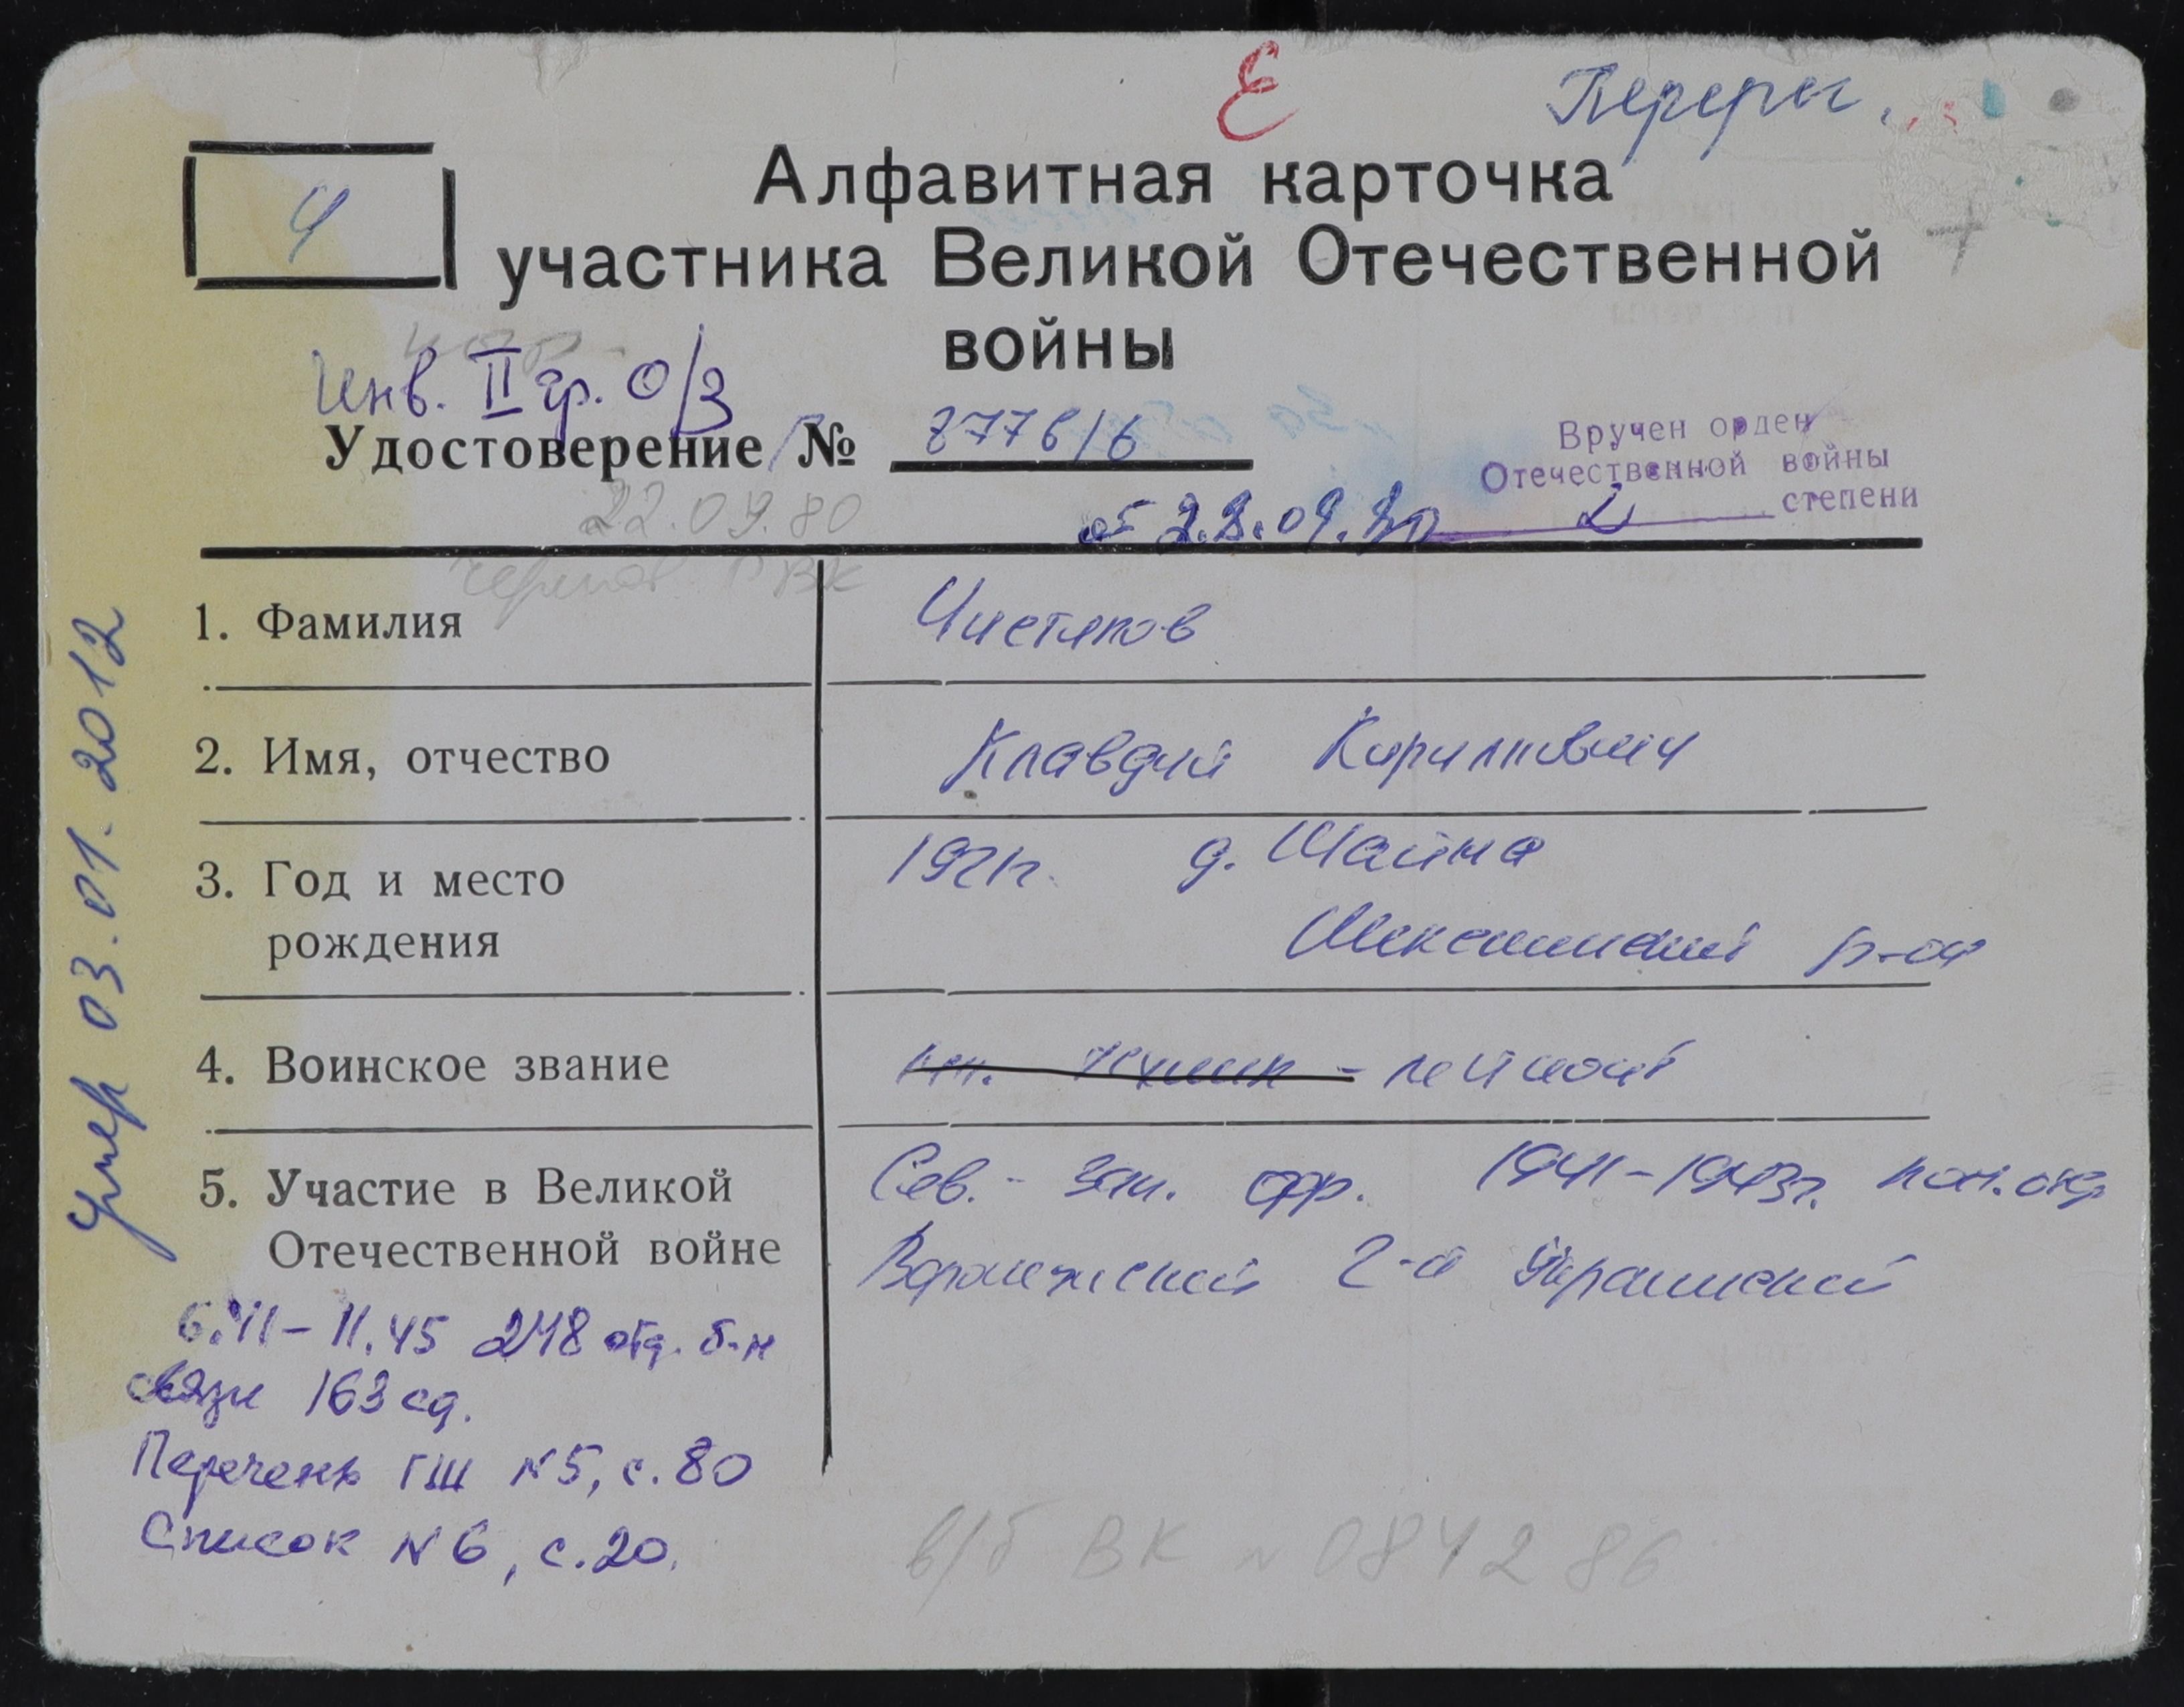 Е Перерег.
Ч
Алфавитная карточка
участника Великой Отечественной
войны
Инв. II гр. о/з
Удостоверение № 877616
Вручен орден
Отечественной войны
степени
22.09.80
от 22.09.80
1. Фамилия Чистяков
2. Имя, отчество Клавдий Кирилович
3. Год и место 1921г. д. Шайма
рождения Шекснинский р-он
4. Воинское звание лейтент
5. Участие в Великой Сев.-Зап. фр. 1941-1943г. ком. отд
Отечественной войне Воронежский 2-й Украинский
6.41-11.45 248 отд. б-н
связи 163 сд.
Перечень ГШ N5, с. 80
Список N6, с. 20.
в/б ВК N 084286
умер 03.01.2012